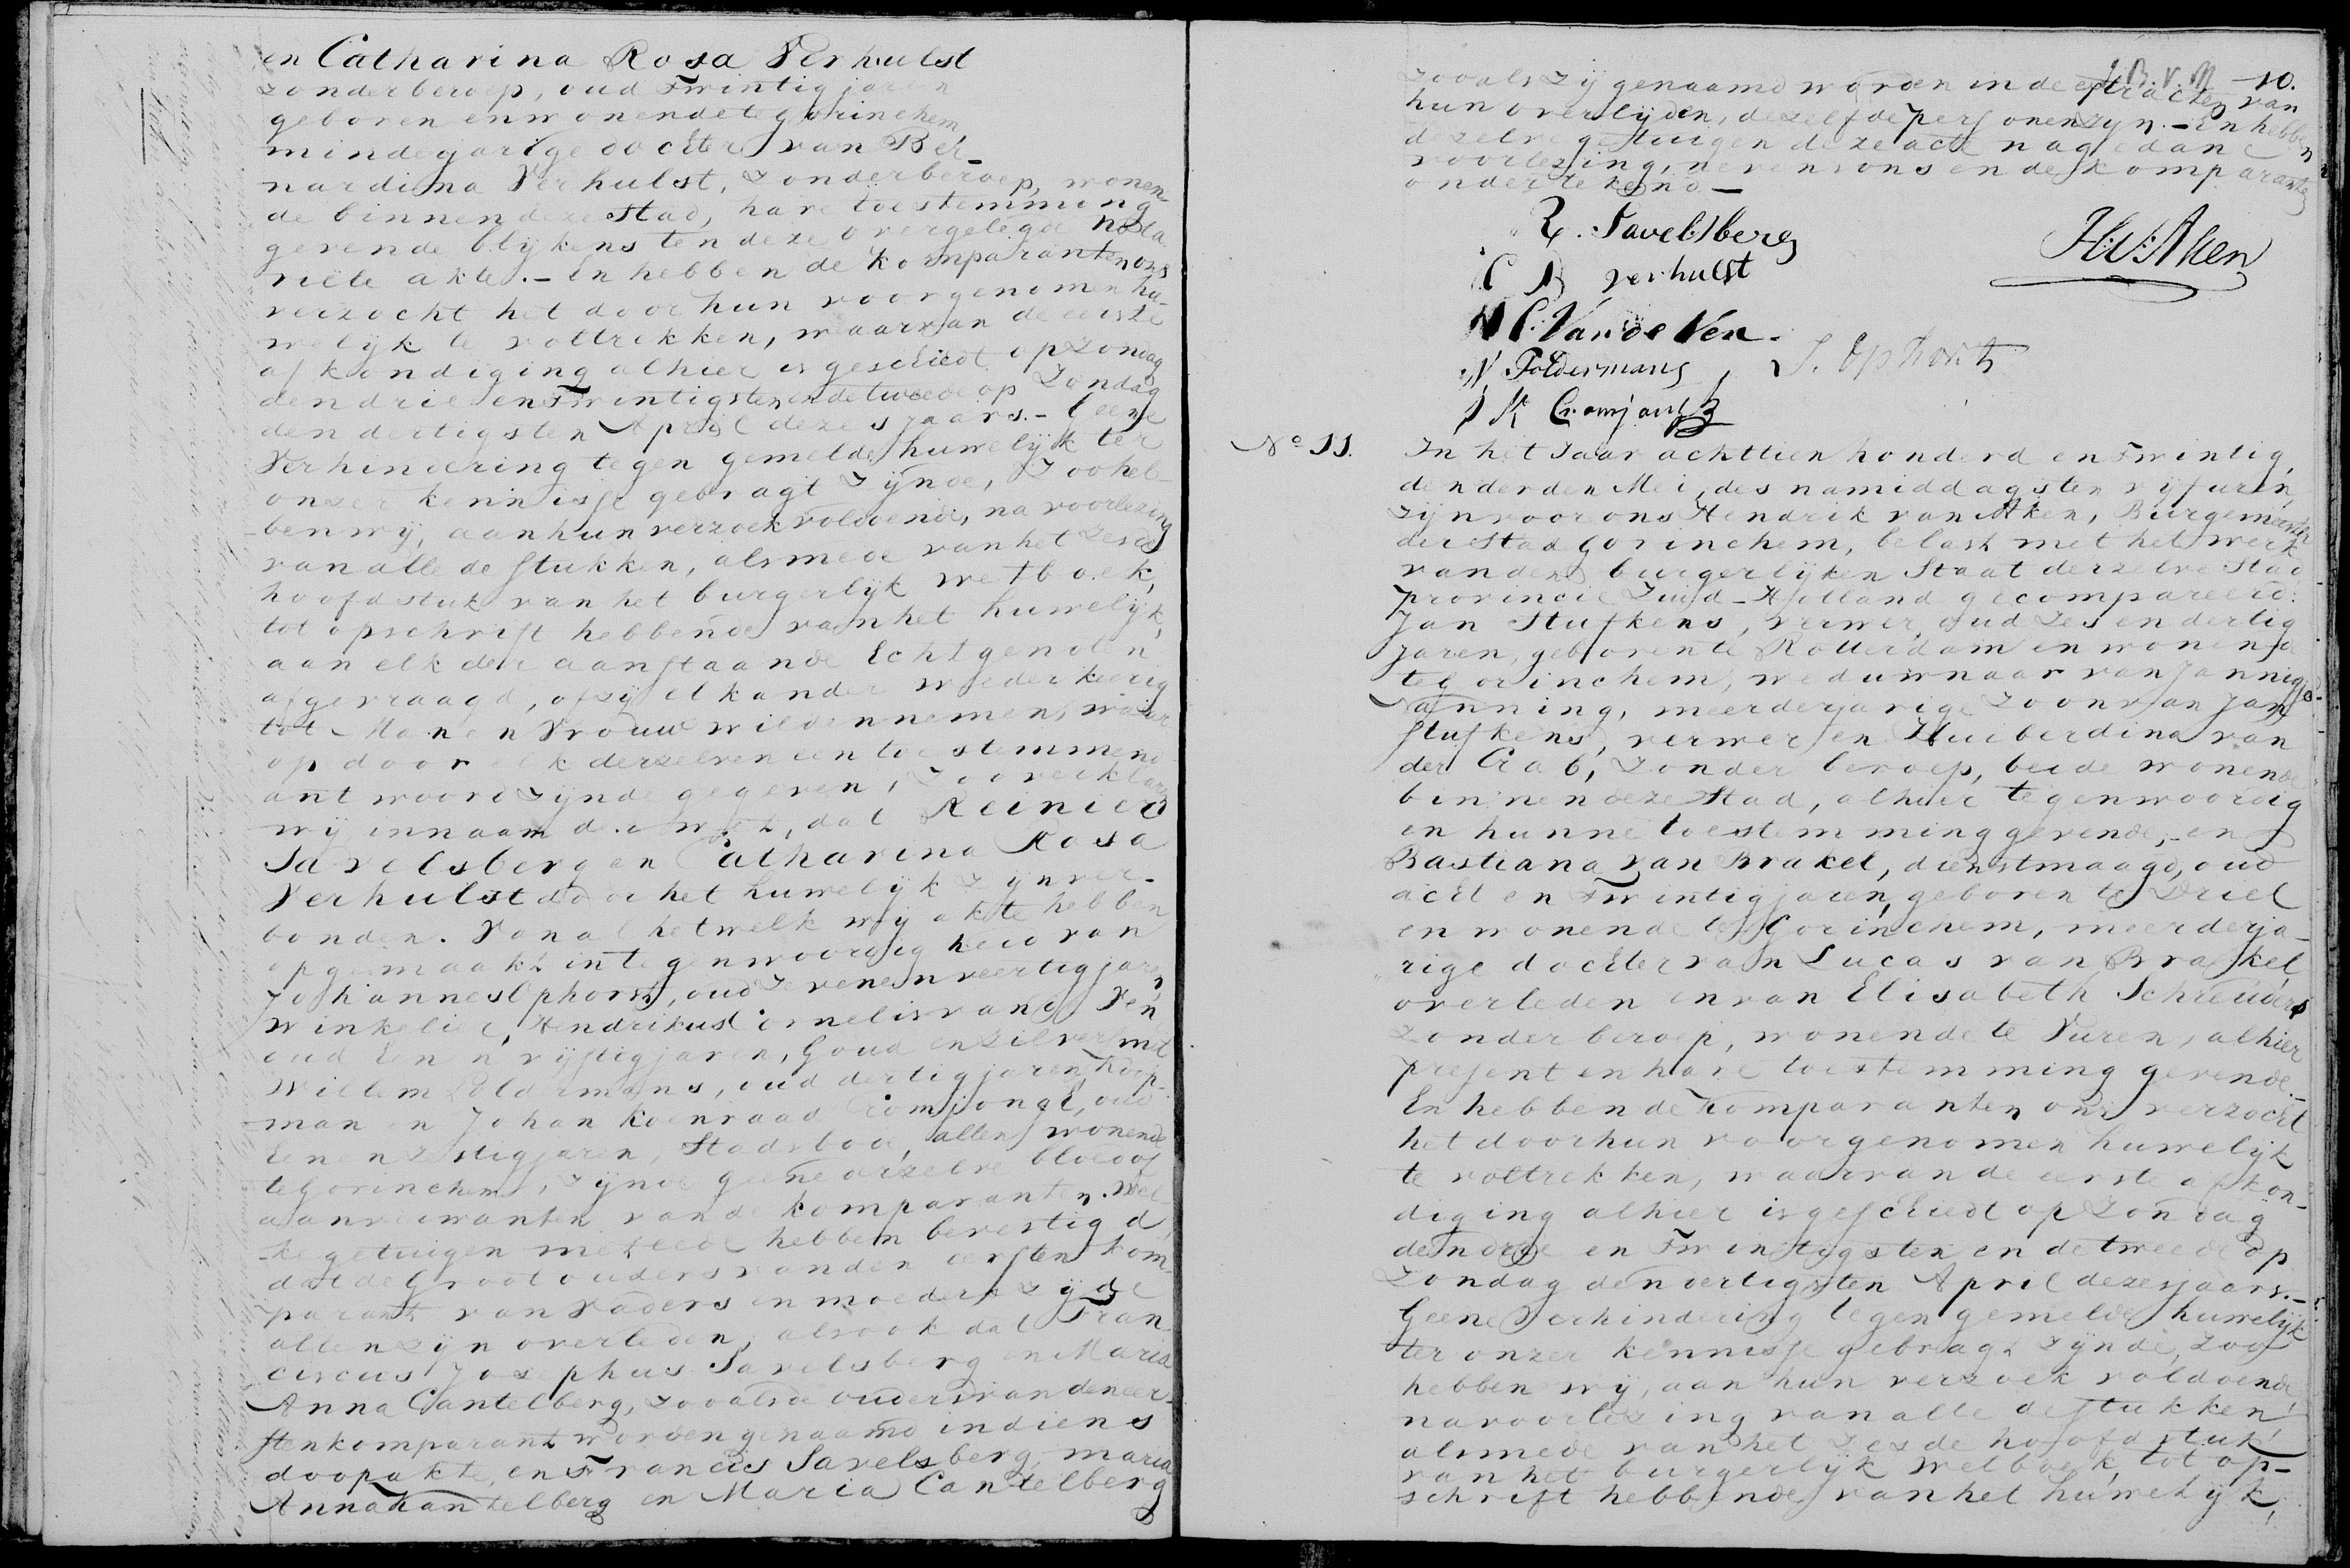 en Catharina Rosa Verhulst
zonder beroep, oud Twintig jaren
geboren en wonende te Gorinchem,
minderjarige dochter van Ber-
nardina Verhulst, zonder beroep, wonen-
de binnen deze Stad, hare toestemming
gevende blijkens ten deze overgelegde nota
riële akte. - En hebben de Komparanten ons
verzocht het door hun voorgenomen hu-
welijk te voltrekken, waarvan de eerste
afkondiging alhier is geschiedt op Zondag
den drie en Twintigsten en de tweede op Zondag
den dertigsten April dezes jaars. - Geene
Verhindering tegen gemelde huwelijk ter
onzer kennisse gebragt zijnde, Zoo heb-
ben wij, aan hun verzoek voldoende, na voorlezing
van alle de stukken, alsmede van het zesde
hoofdstuk van het burgerlijk wetboek,
tot opschrift hebbende van het huwelijk,
aan elk der aanstaande Echtgenoten
afgevraagd, of zij elkander wederkeerig
tot Man en Vrouw wilden nemen, waar
op door elk derzelven een toestemmend
antwoord zijnde gegeven, Zoo verklaren
wij in naam der wet, dat Reinier
Savelsberg en Catharina Rosa
Verhulst door het huwelijk zijn ver-
bonden. Van al hetwelk wij akte hebben
opgemaakt in tegenwoordigheid van
Johannes Ophorst, oud Zeven en veertig jaren
Winkelier, Hendrikus Cornelis van de Ven
oud Een en vijftig jaren, Goud en Zilversmit
Willem Poldermans, oud dertig jaren, Koop-
man en Johan Koenraad Cromjongh, oud
Een en Zestig jaren, Stadsbode, allen wonende
te Gorinchem, zijnde geene derzelve bloed of
aanverwanten van de komparanten. Wel
ke getuigen met eede hebben bevestigd,
dat de Grootouders van den eersten kom-
parant van Vaders en moeders zijde
allen zijn overleden, alsook dat Fran-
ciscus Josephus Savelsberg en Maria
Anna Cantelberg, zooals de ouders van den eer-
sten komparant worden genaamd in diens
doopakte, en Francis Savelsberg, Maria
Anna Kantelberg en Maria Cantelberg
J.B.V.M 10.
zooals zij genaamd worden in de extracten van
hun overlijden, dezelfde personen zijn. - En hebben
dezelve getuigen deze acte na gedane
voorlezing, nevens ons en de komparanten
ondertekend. -
R. Savelsberg
C R verhulst
H C Van de Ven.
W Poldermans
J. Ophorst
J K Cromjongh
No 11.
In het Jaar achttien honderd en Twintig,
den derden Mei, des namiddags ten vijf uren,
zijn voor ons Hendrik van Aken, Burgemeester
der Stad Gorinchem, belast met het werk
van den burgerlijken Staat derzelve Stad,
provincie Zuid-Holland gecompareerd:
Jan Stufkens, verwer, oud Zes en dertig
jaren, geboren te Rotterdam en wonende
te Gorinchem, weduwnaar van Jannigje
Nanning, meerderjarige Zoon van Jan
Stufkens, verwer en Huiberdina van
der Crab, zonder beroep, beide wonende
binnen deze Stad, alhier tegenwoordig
en hunne toestemming gevende, - en
Bastiana van Brakel, dienstmaagd, oud
acht en Twintig jaren, geboren te Driel
en wonende te Gorinchem, meerderja-
rige dochter van Lucas van Brakel
overleden en van Elisabeth Schreuders
zonder beroep, wonende te Vuren, alhier
present en hare toestemming gevende. -
En hebben de Komparanten ons verzocht
het door hun voorgenomen huwelijk
te voltrekken, waarvan de eerste afkon-
diging alhier is geschiedt op Zondag
den drie en Twintigsten en de tweede op
Zondag den dertigsten April dezes jaars. -
Geene Verhindering tegen gemelde huwelijk
ter onzer kennisse gebragt zijnde, zoo
hebben wij, aan hun verzoek voldoende,
na voorlezing van alle de stukken,
alsmede van het zesde hoofdstuk
van het burgerlijk wetboek, tot op-
schrift hebbende van het huwelijk,